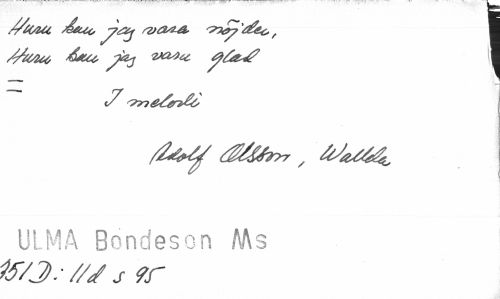 Huru kan jag vara nöjder,
Huru kan jag vara glad
=
I melodi
Adolf Olsson, Wallda
ULMA Bondeson Ms
351 D: 11 d s 95